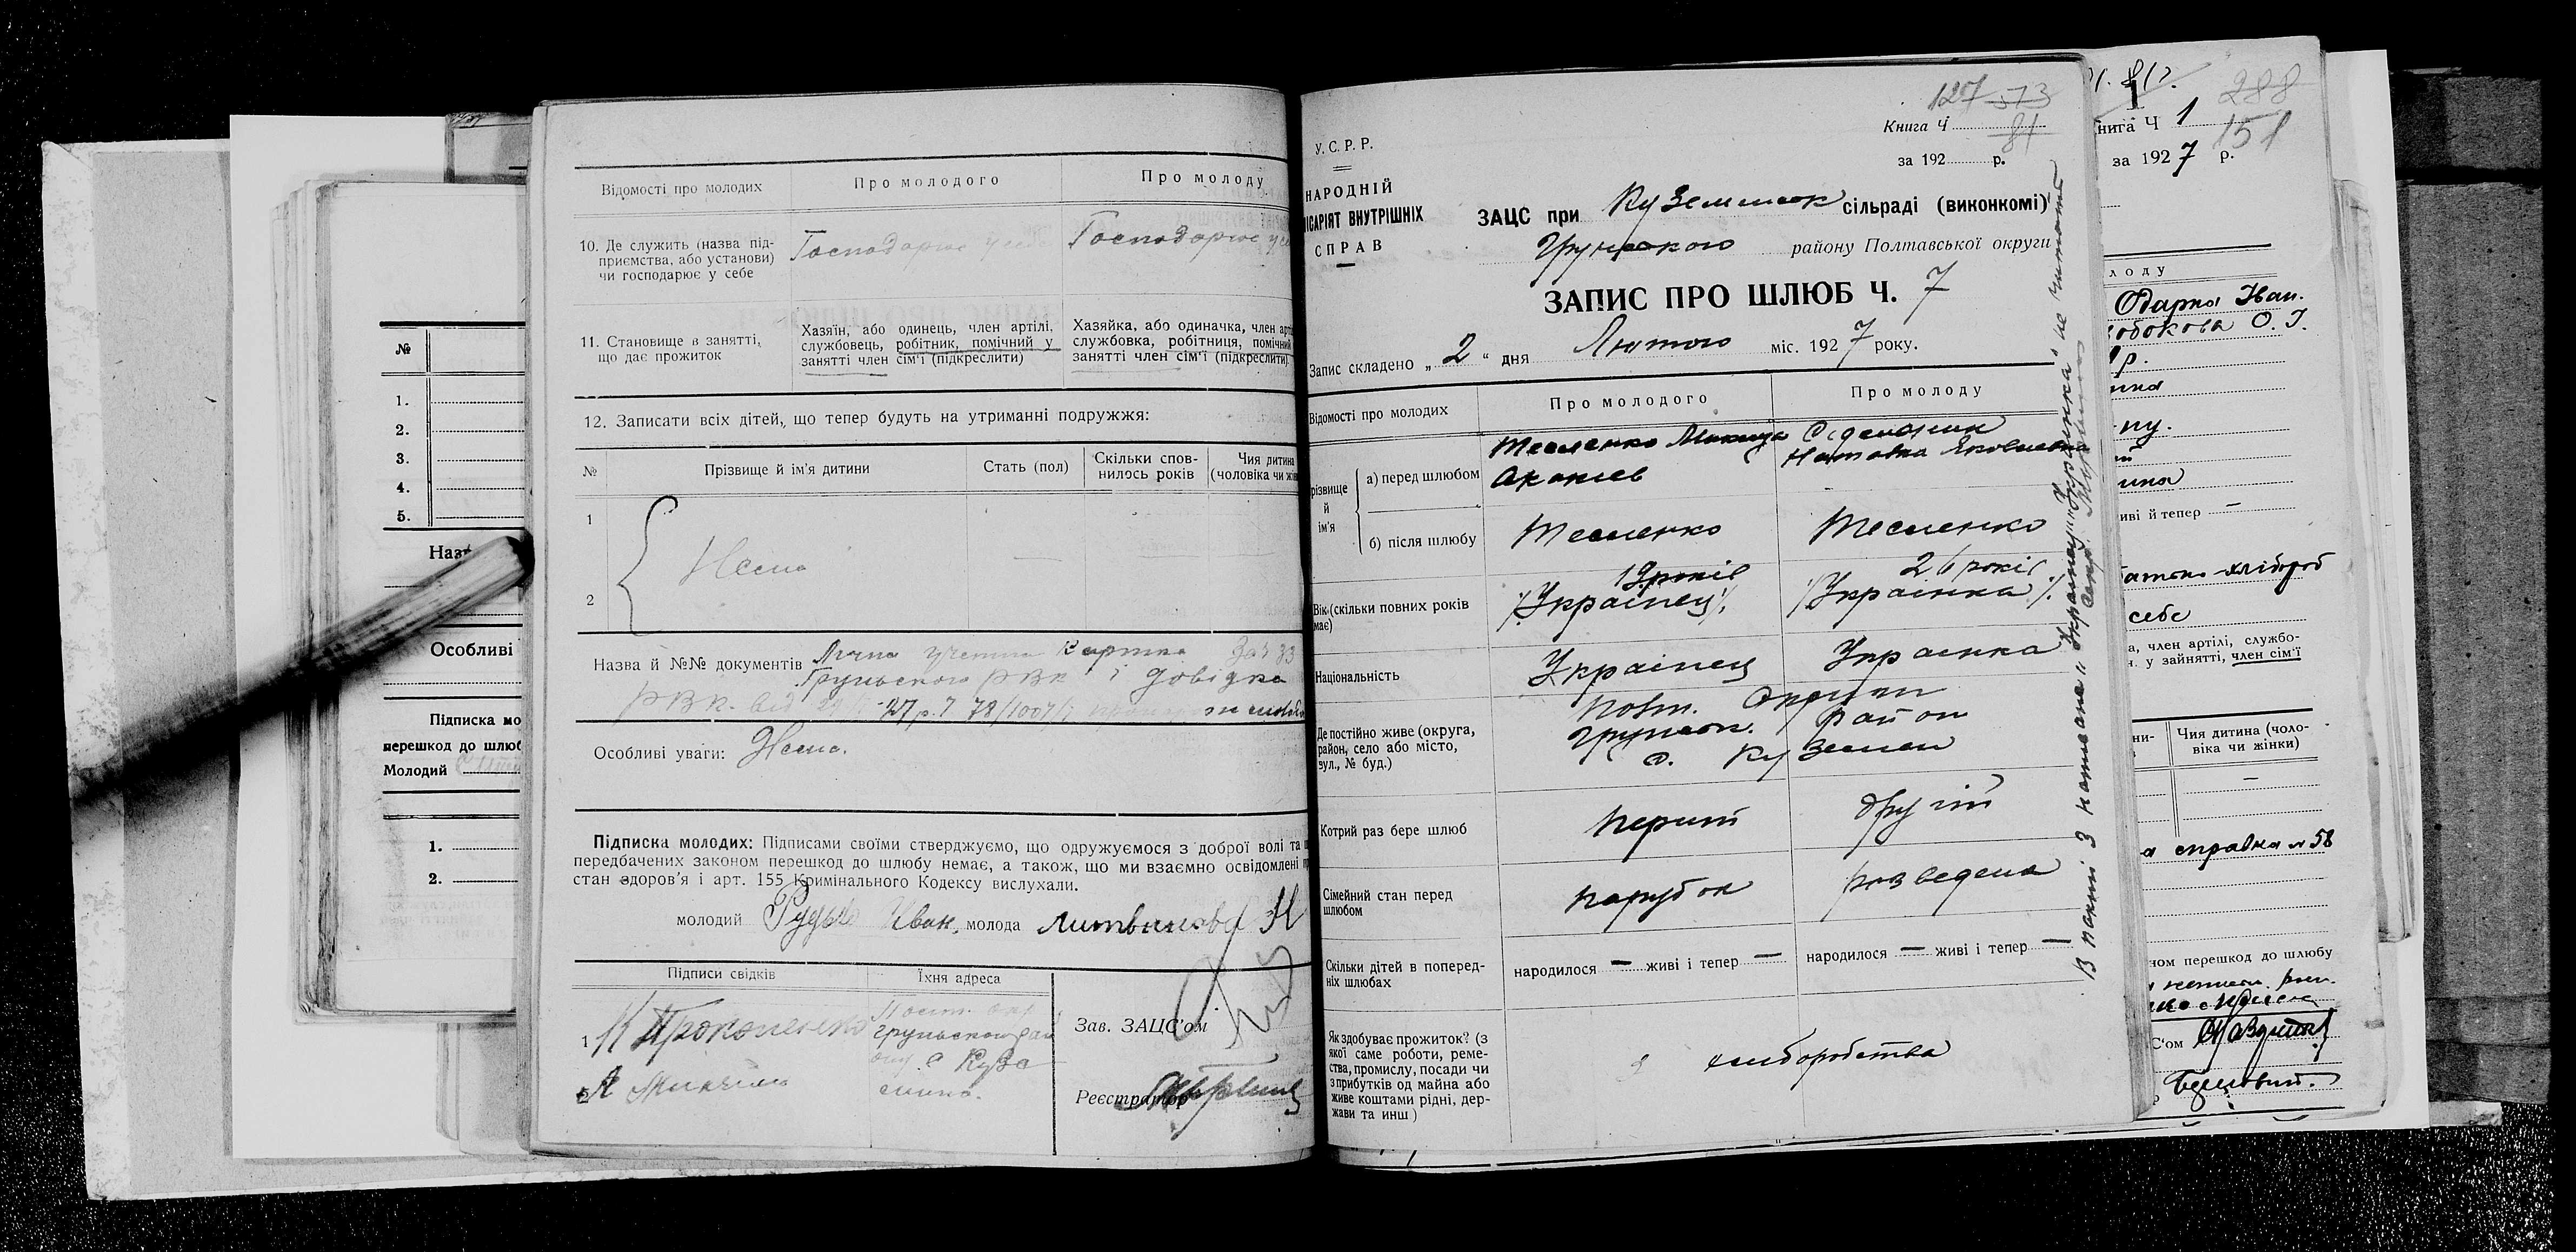 №
1.
2.
3.
4.
5.
Особливі
Підписка мо
перешкод до шлюб
Молодий
1.
2.
Відомості про молодих
Про молодого
Про молоду
10. Де служить (назва під-
приємства, або установи)
чи господарює у себе
Господарює у себе
Господарює у
11. Становище в занятті,
що дає прожиток
Хазяїн, або одинець, член артілі,
службовець, робітник, помічний у
занятті член сім'ї (підкреслити)
Хазяйка, або одиначка, член арті
службовка, робітниця, помічний
занятті член сім'ї (підкреслити)
12. Записати всіх дітей, що тепер будуть на утриманні подружжя:
№
Прізвище й ім'я дитини
Стать (пол)
Скільки спов-
нилось років
Чия дитина
(чоловіка чи жін
1
Нема
2
Назва й №№ документів Лична учетна Картка
Грунського РВК і довідка
РВК. від 27 р. 78/1007
Особливі уваги: Нема.
Підписка молодих: Підписами своїми стверджуємо, що одружуємося з доброї волі та
передбачених законом перешкод до шлюбу немає, а також, що ми взаємно освідомлені
стан здоров'я і арт. 155 Кримінального Кодексу вислухали.
молодий Рудько Иван, молода Литвинова Н
Підписи свідків
Їхня адреса
1 Н Прокопенко
Полт. окр
Грунського рай
с Кузе
мина.
2
Зав. ЗАЦС'ом
Реєстратор
127 573
Книга Ч
81
за 192 р.
У.С.Р.Р.
НАРОДНІЙ
ІСАРІЯТ ВНУТРІШНІХ
СПРАВ
ЗАЦС при Куземинск сільраді (виконкомі)
Грунського району Полтавської округи
ЗАПИС ПРО ШЛЮБ Ч. 7
Запис складено „ 2 “ дня Лютого міс. 1927 року.
Відомості про молодих
Про молодого
Про молоду
різвище
й
ім'я
а) перед шлюбом
Тесленко Микита
Акакиев
Наталка Яковлевна
б) після шлюбу
Тесленко
Тесленко
Вік (скільки повних років
має)
19 років
/Українец/
26 років
/Українка/
Національність
Українец
Українка
Де постійно живе (округа,
район, село або місто,
вул., № буд.)
Полт. Округи
Грунськ. район
с. Куземен
Котрий раз бере шлюб
перший
другий
Сімейний стан перед
шлюбом
парубок
розведена
Скільки дітей в поперед-
ніх шлюбах
народилося — живі і тепер —
народилося — живі і тепер —
Як здобуває прожиток? (з
якої саме роботи, реме-
ства, промислу, посади чи
з прибутків од майна або
живе коштами рідні, дер-
жави та инш)
з хліборобства
В пункті 3 написане „українец“, „українка“ не читати
288
нига Ч 1
151
за 1927 р.
лоду
Одарка Иван.
обокова О. І.
иві й тепер —
хлібороб
себе
а, член артілі, службо-
. у зайнятті, член сім'ї
Чия дитина (чоло-
віка чи жінки)
—
—
справка № 58
ном перешкод до шлюбу
С'ом